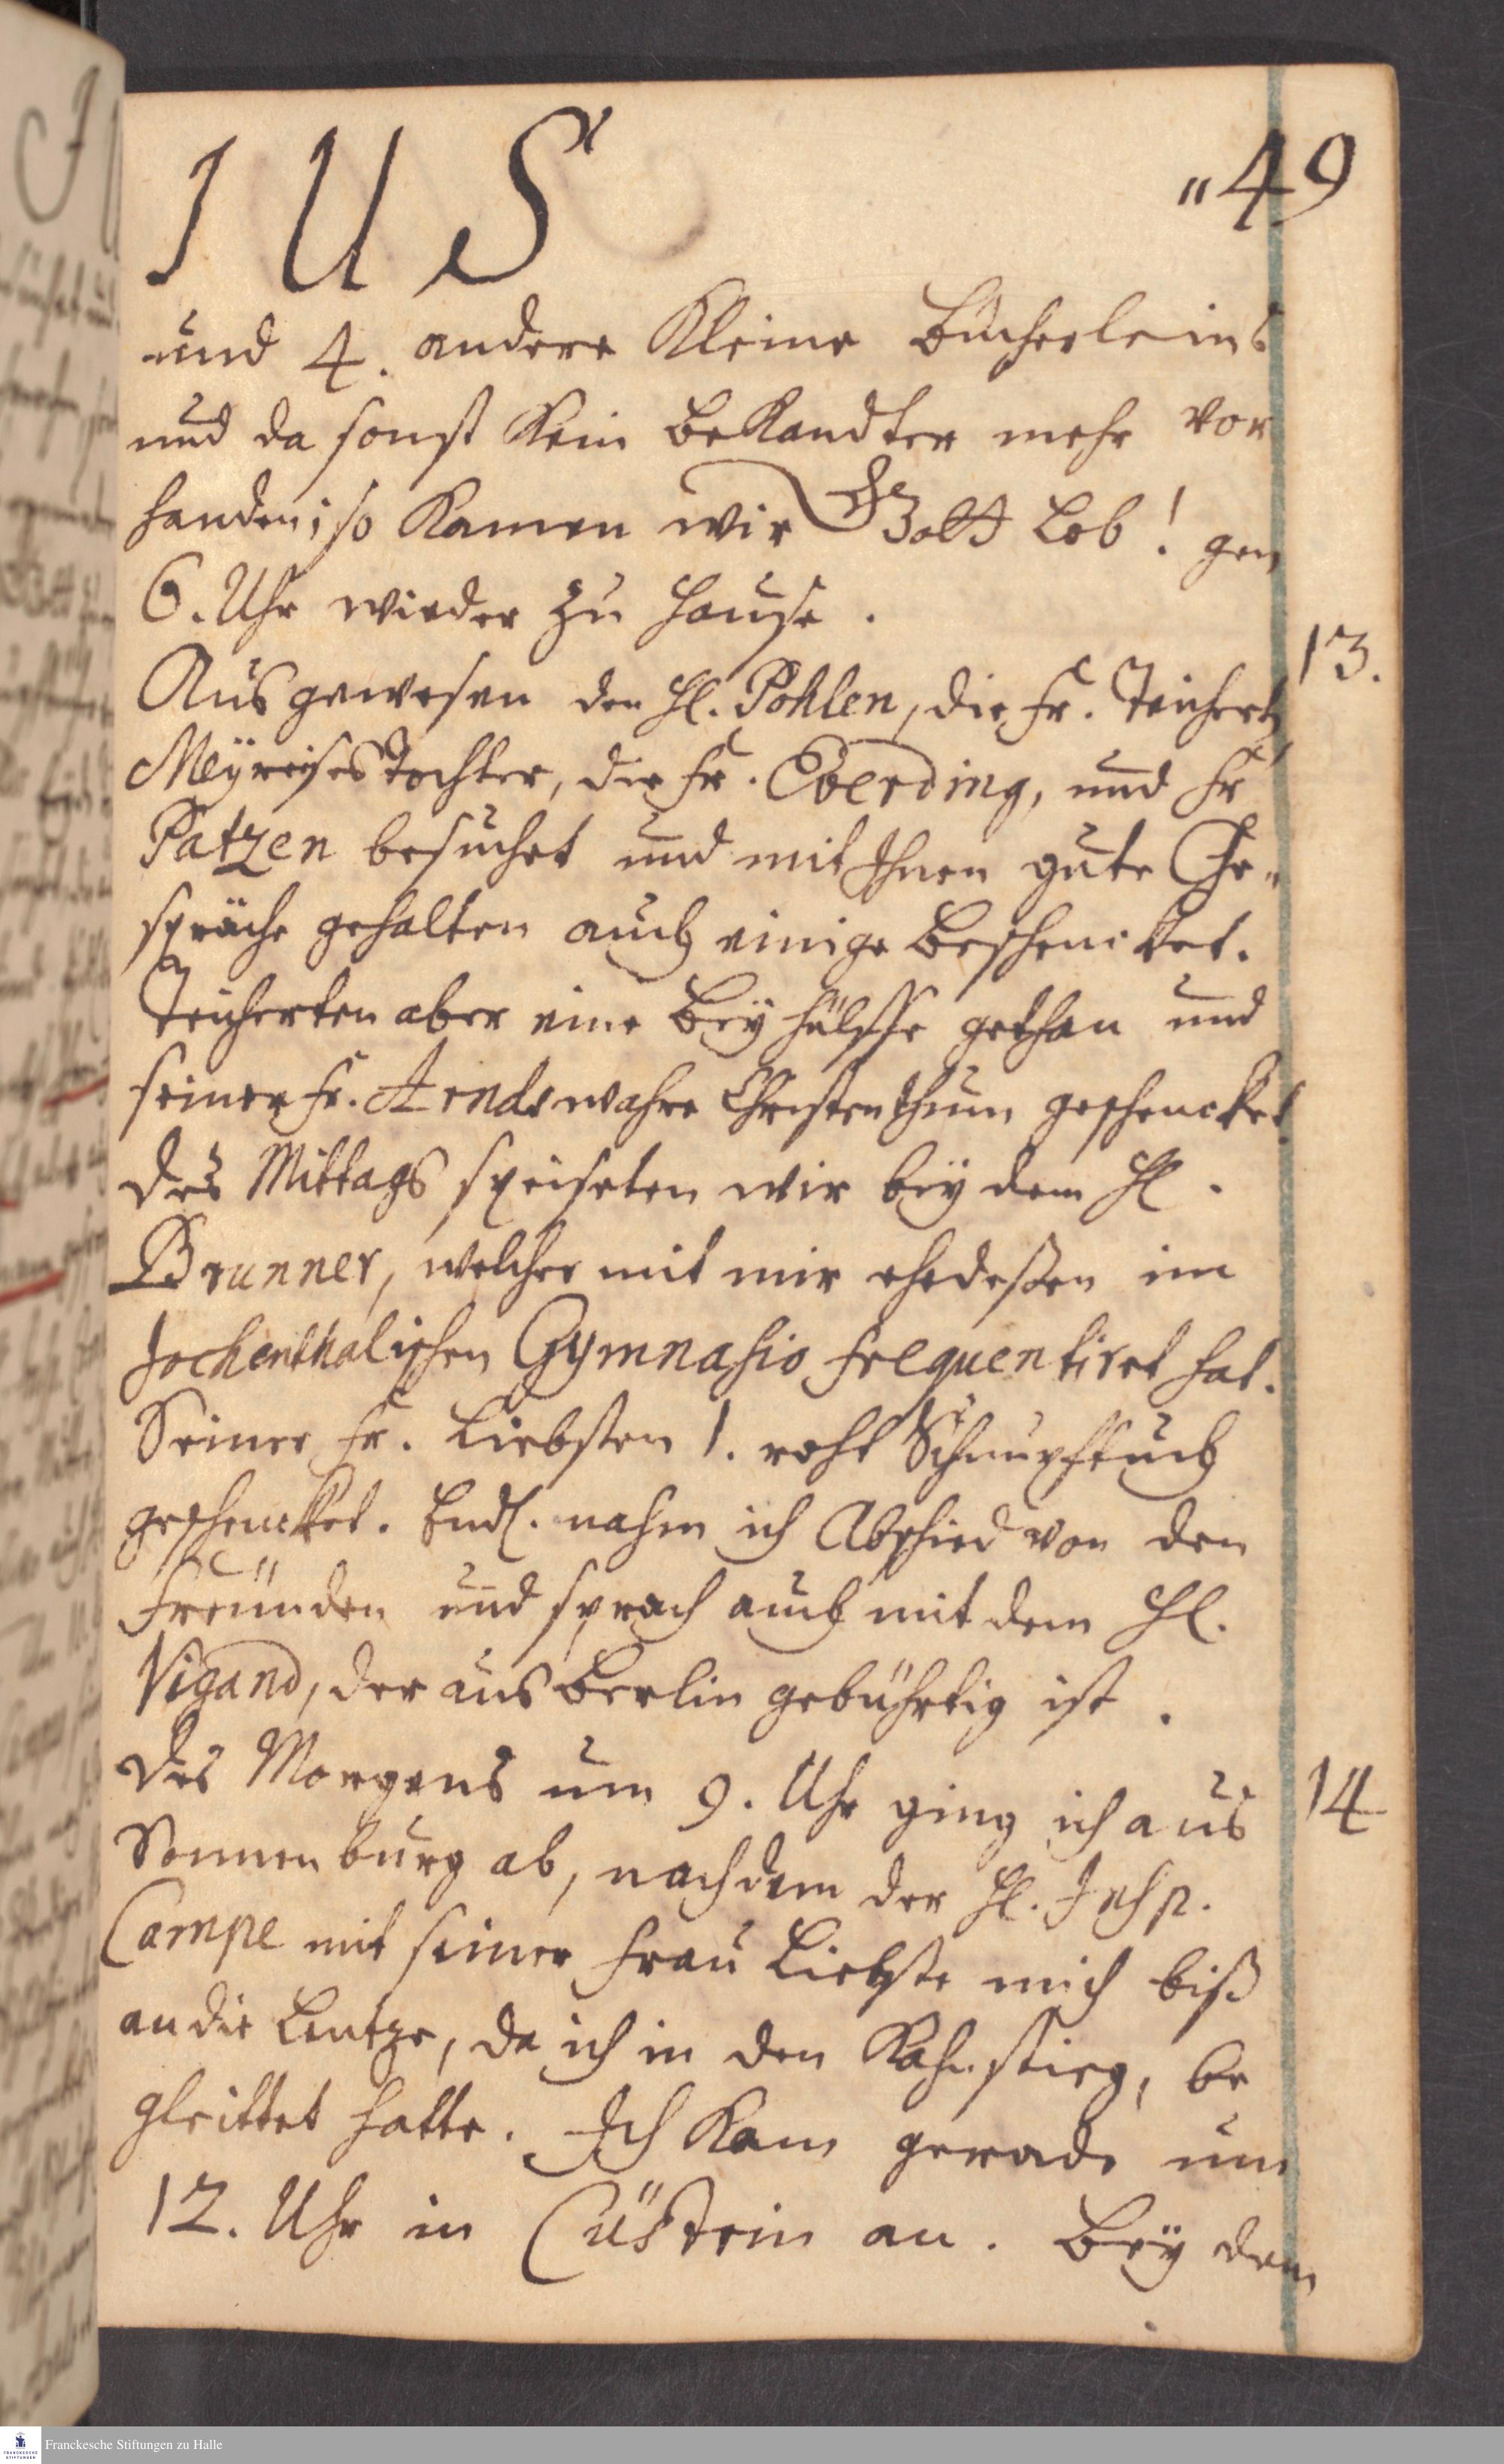 IUS
"49
und 4. andere Kleine Bücherleins
und da sonst Kein beKandter mehr vor
handen; so Kamen wir Gott Lob! gen
6. Uhr wieder zu Hause.
13.
Ausgewesen den Hl. Pohlen, die Fr. Teichert,
Meÿreises Tochter, die Fr. Eberding, und Fr
Patzen besuchet und mit Ihnen gute Ge„
spräche gehalten auch einige beschencket.
Teicherten aber eine Beÿhülffe gethan und
seiner Fr. Arnds wahre Christenthum geschencket
des Mittags speiseten wir beÿ dem Hl.
Brunner, welcher mit mir ehedeßen im
Jochenthalischen Gymnasio frequentiret hat.
Seiner Fr. Liebsten 1. roht Schnupftuch
geschencket. Endl. nahm ich Abschied von den
Freünden und sprach auch mit dem Hl.
Vigand, der aus Berlin gebührtig ist.
14
Des Morgens um 9. Uhr ging ich aus
Sonnenburg ab, nachdem der Hl. Insp.
Campe mit seiner Frau Liebste mich biß
an die Lentze, da ich in den Kahn stieg, be
gleittet hatte. Ich Kam gerade um
12. Uhr in Cüstrin an. Beÿ dem
Franckesche Stiftungen zu Halle